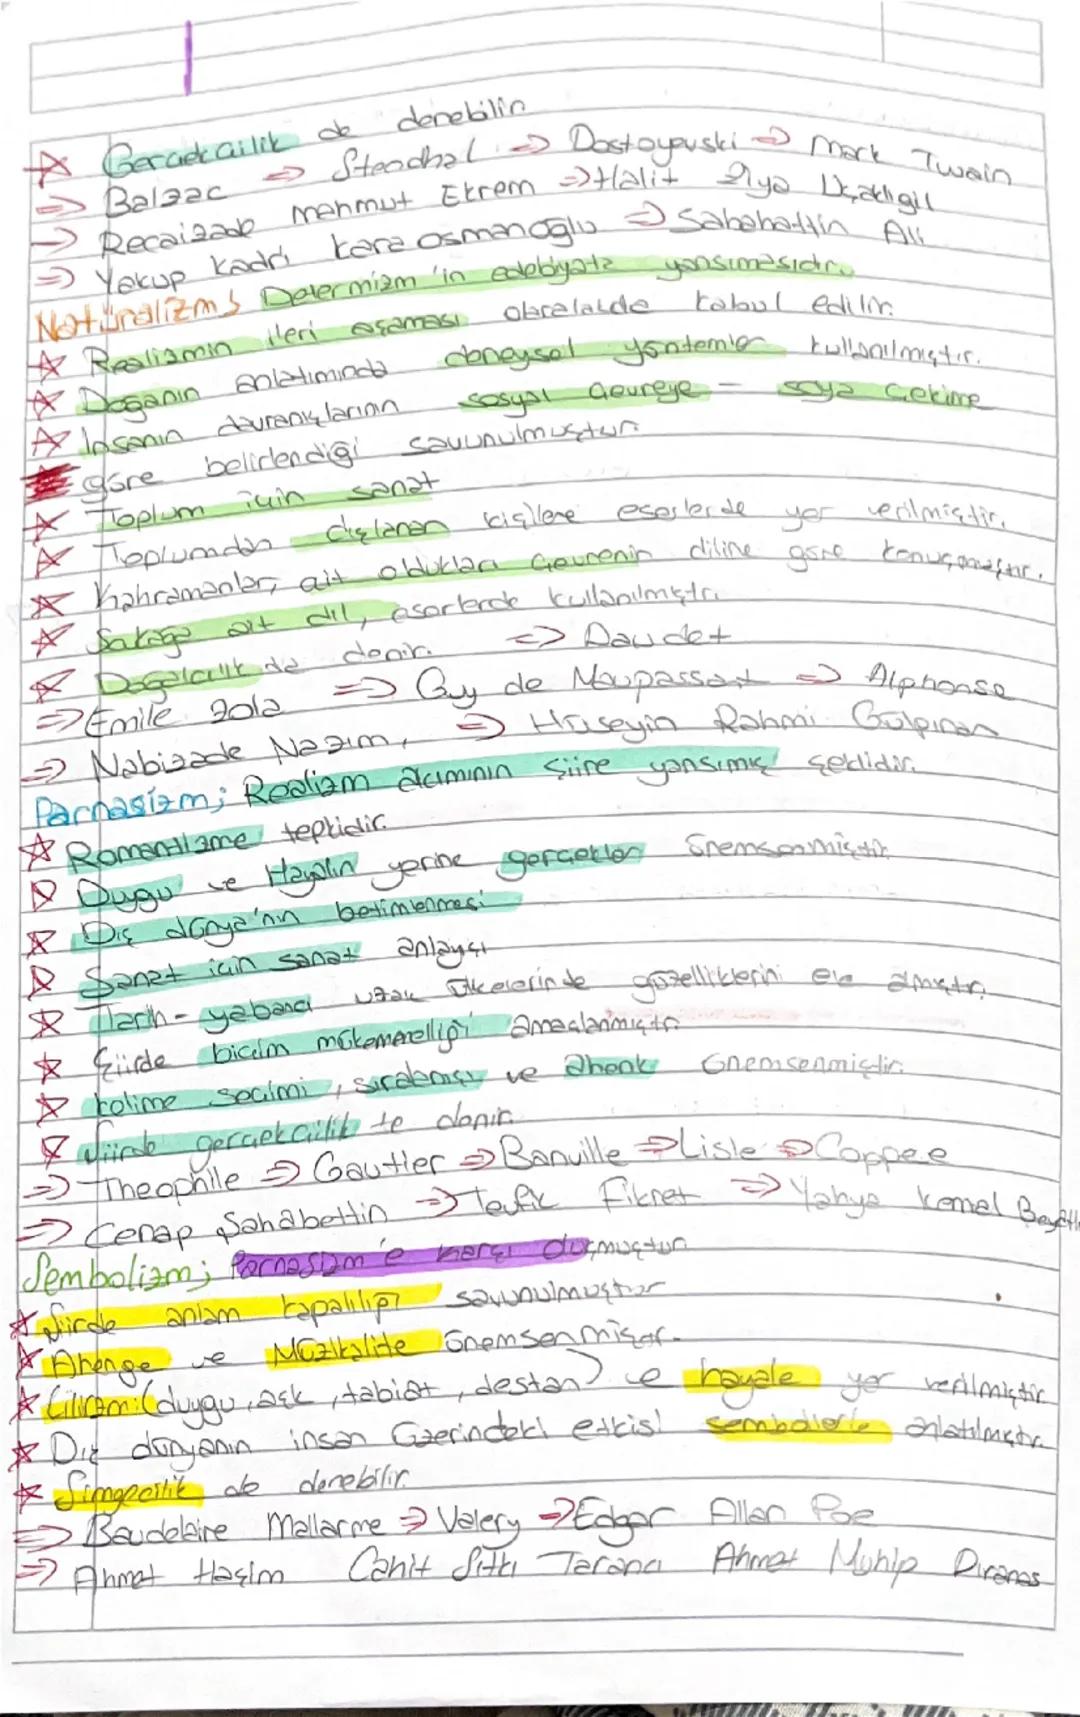 ☆ Gerçekçilik de denebilir
⇒ Balzac ⇒ Stendhal ⇒ Dostoyevski ⇒ Mark Twain
⇒ Recaizade mahmut Ekrem ⇒ Halit Ziya Uşaklıgil
⇒ Yakup Kadri kara osmanoğlu ⇒ Sabahattin Ali
Natüralizm; Determizm'in edebiyata yansımasıdır.
☆ Realizmin ileri aşaması olaralakde kabul edilir.
☆ Doğanın anlatımında deneysel yöntemler kullanılmıştır.
☆ İnsanın davranışlarının sosyal çevreye - soya çekime
göre belirlendiği savunulmuştur.
☆ Toplum için sanat
☆ Toplumdan dışlanan kişilere eserlerde yer verilmiştir.
☆ Kahramanlar, ait oldukları çevrenin diline göre konuşmuştur.
☆ Sokağa ait dil, eserlerde kullanılmıştır.
☆ Doğalcılık da denir. ⇒ Daudet
⇒ Emile Zola ⇒ Guy de Maupassant ⇒ Alphonse
⇒ Nabizade Nazım, ⇒ Hüseyin Rahmi Gülpınar
Parnasizm; Realizm akımının şiire yansımış şeklidir.
☆ Romantizme tepkidir.
☆ Duygu ve Hayalin yerine gerçekler önemsenmiştir.
☆ Dış dünya'nın betimlenmesi
☆ Sanat için sanat anlayışı
☆ Tarih - yabancı uzak ülkelerinde güzelliklerini ele almıştır.
☆ Şiirde biçim mükemmelliği amaçlanmıştır.
☆ kelime seçimi, sıralanışı ve ahenk önemsenmiştir.
☆ Şiirde gerçekçilik te denir.
⇒ Theophile ⇒ Gautier ⇒ Banville ⇒ Lisle ⇒ Coppee
⇒ Cenap Şahabettin ⇒ Tevfik Fikret ⇒ Yahya kemal Beyatlı
Sembolizm; Parnasizm'e karşı doğmuştur.
☆ Şiirde anlam kapalılığı savunulmuştur
☆ Ahenge ve Müzikalite önemsenmiştir.
☆ Lilizm: (duygu, aşk, tabiat, destan) ve hayale yer verilmiştir.
☆ Dış dünyanın insan üzerindeki etkisi sembollerle anlatılmıştır.
☆ Simgecilik de denebilir.
⇒ Baudelaire Mallarme ⇒ Valery ⇒ Edgar Allan Poe
⇒ Ahmet Haşim Cahit Sıtkı Tarancı Ahmet Muhip Dıranas